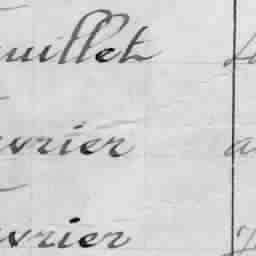 uillet
vrier
vrier